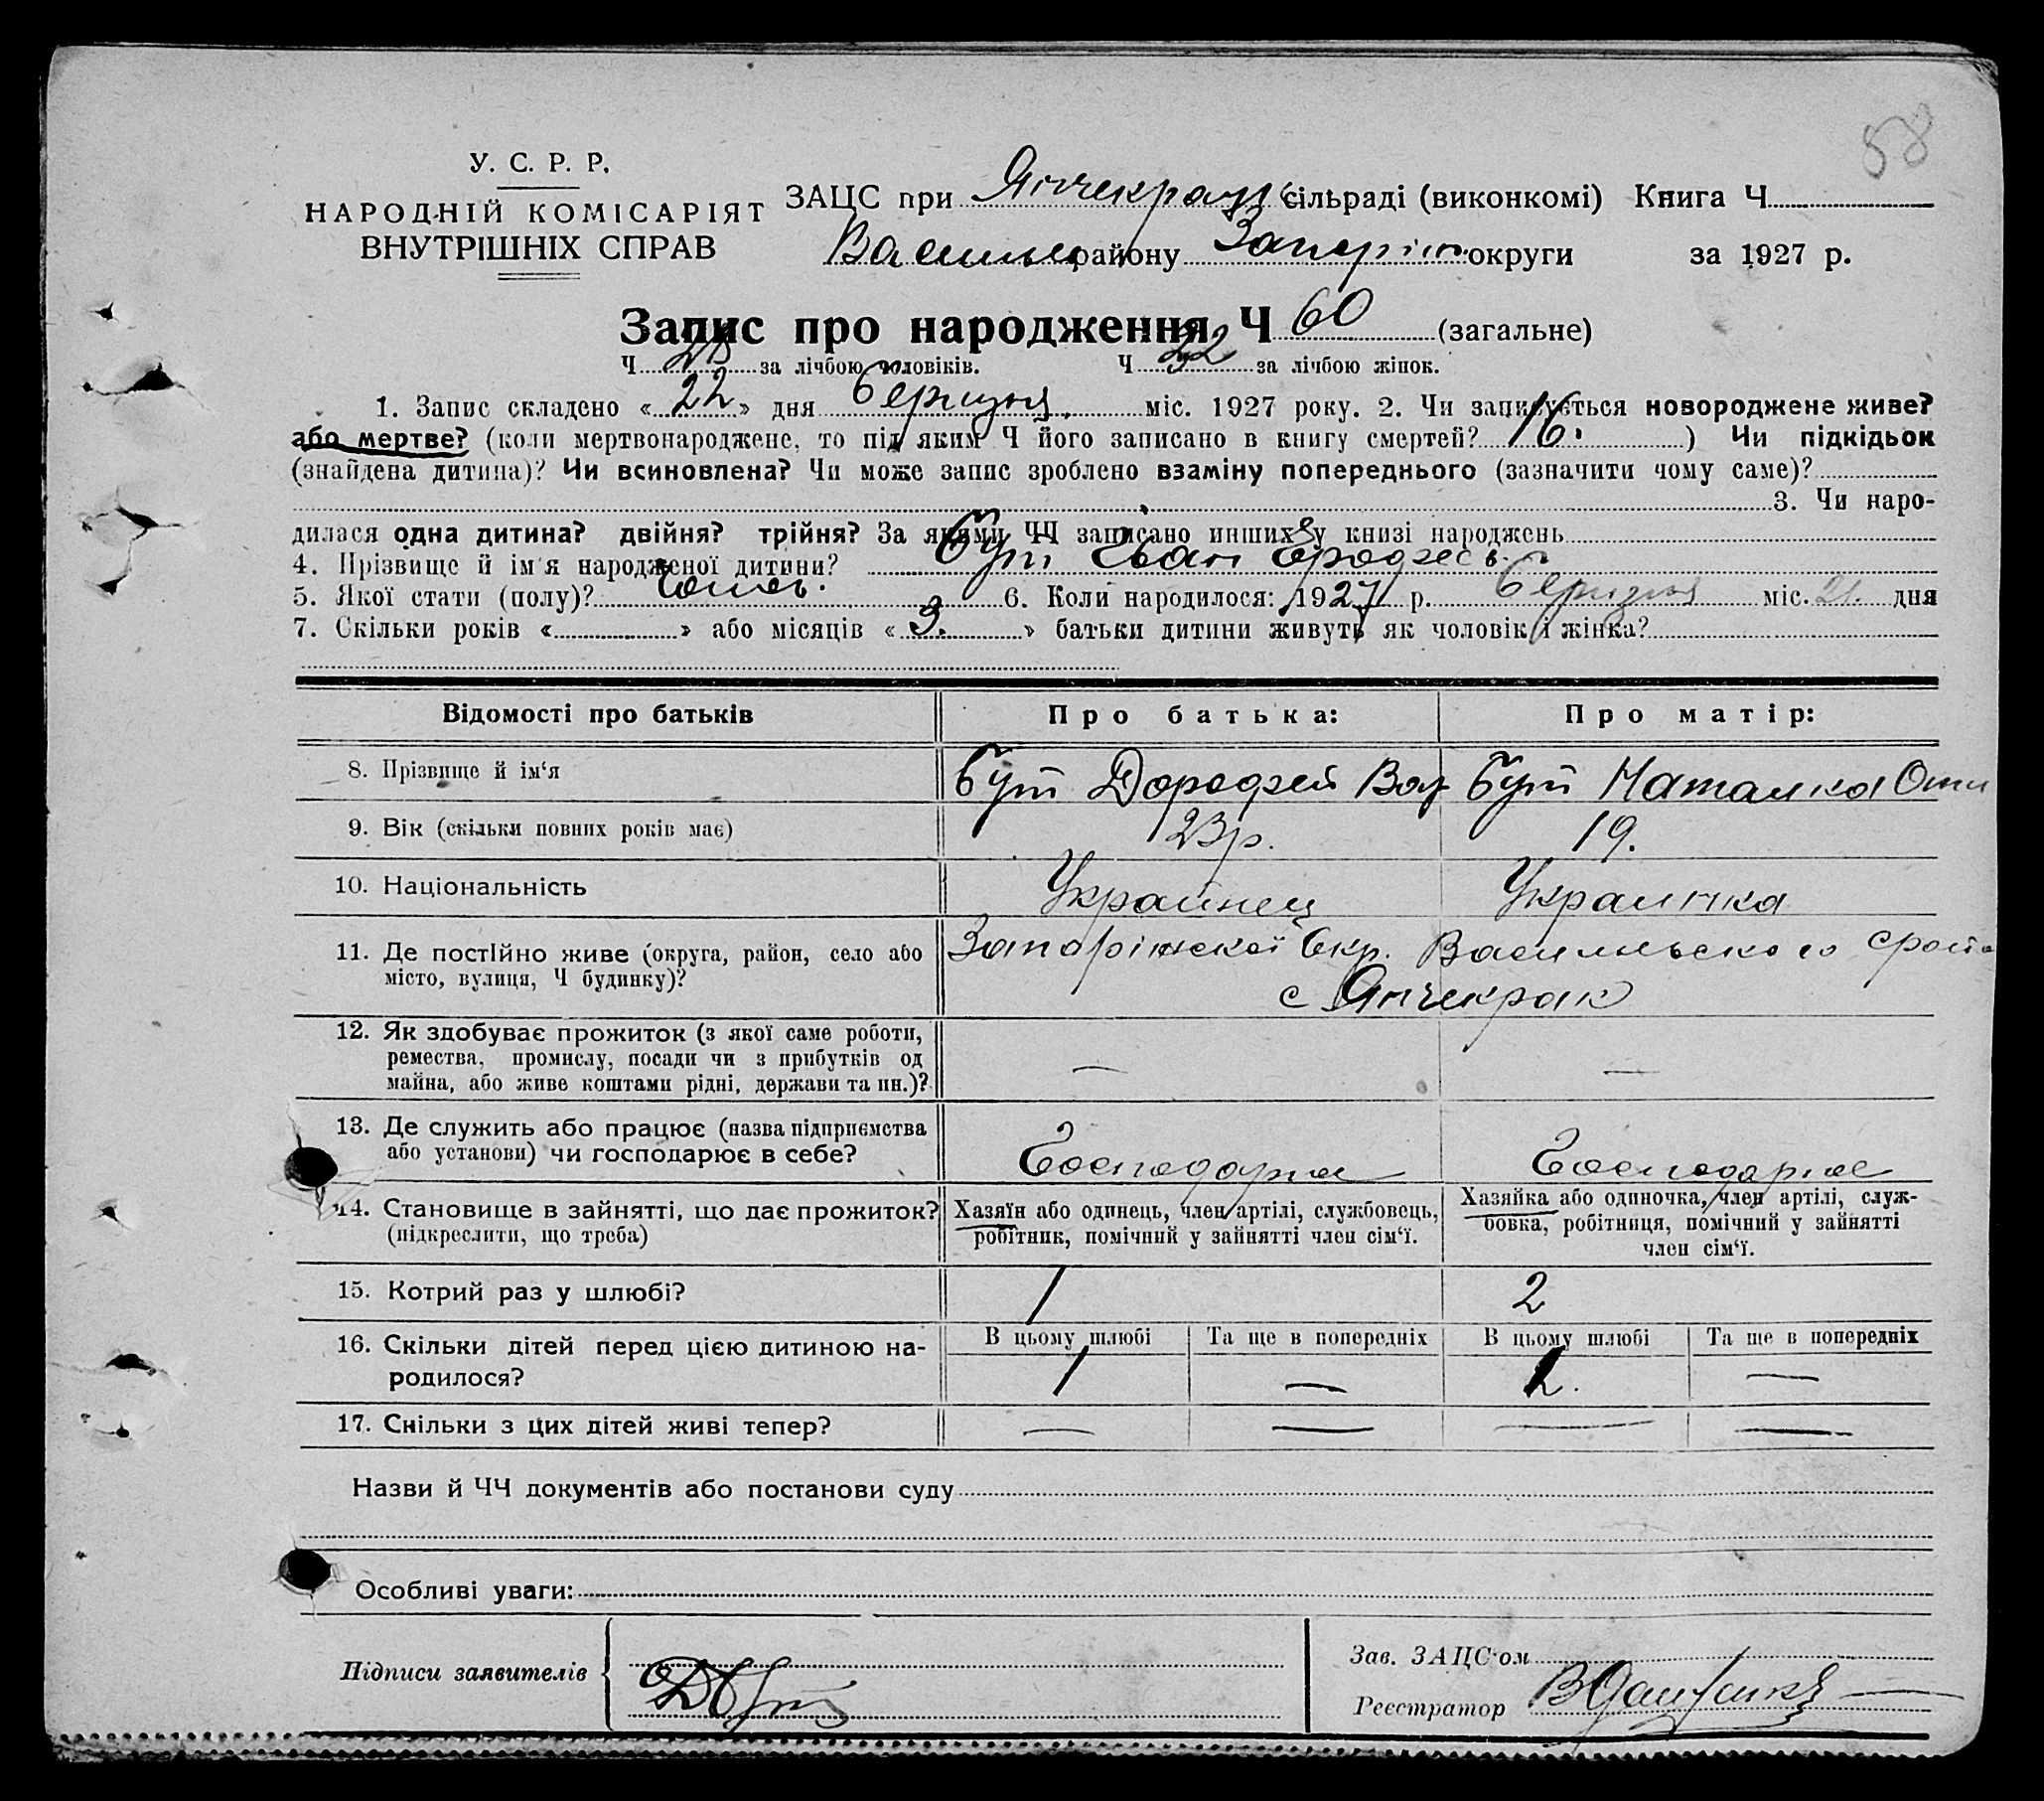 58
У. С. Р. Р.
НАРОДНІЙ КОМІСАРІЯТ
ВНУТРІШНІХ СПРАВ
ЗАЦС при Янчекрац сільраді (виконкомі) Книга Ч
Васильев району Запоріж. округи за 1927 р.
Запис про народження Ч 60 (загальне)
Ч за лічбою чоловіків. Ч 32 за лічбою жінок.
1. Запис складено « 22 » дня березня міс. 1927 року. 2. Чи записується новороджене живе?
або мертве? (коли мертвонароджене, то під яким Ч його записано в книгу смертей? 16. ) Чи підкідьок
(знайдена дитина)? Чи всиновлена? Чи може запис зроблено взаміну попереднього (зазначити чому саме)?
3. Чи наро-
дилася одна дитина? двійня? трійня? За якими ЧЧ записано инших у книзі народжень
4. Прізвище й ім'я народженої дитини? Бут Іван
5. Якої стати (полу)? 6. Коли народилося: 1927 р. березня міс. 21. дня
7. Скільки років « » або місяців « 3. » батьки дитини живуть як чоловік і жінка?
Відомості про батьків
Про батька:
Про матір:
8. Прізвище й ім'я
Бут Дорофзей
Бут Наталка
9. Вік (скільки повних років має)
23р.
19.
10. Національність
Украинец
Украинка
11. Де постійно живе (округа, район, село або
місто, вулиця, Ч будинку)?
Запоріжскої Окр. Васильевского
с Янчекрак
12. Як здобуває прожиток (з якої саме роботи,
ремества, промислу, посади чи з прибутків од
майна, або живе коштами рідні, держави та ин.)?
—
—
13. Де служить або працює (назва підприємства
або установи) чи господарює в себе?
Господарює
Господарює
14. Становище в зайнятті, що дає прожиток?
(підкреслити, що треба)
Хазяїн або одинець, член артілі, службовець,
робітник, помічний у зайнятті член сім'ї.
Хазяйка або одиночка, член артілі, служ-
бовка, робітниця, помічний у зайнятті
член сім'ї.
15. Котрий раз у шлюбі?
1
2
16. Скільки дітей перед цією дитиною на-
родилося?
В цьому шлюбі
Та ще в попередніх
В цьому шлюбі
Та ще в попередніх
1
—
—
17. Скільки з цих дітей живі тепер?
—
—
—
—
Назви й ЧЧ документів або постанови суду
Особливі уваги:
Підписи заявителів
Зав. ЗАЦС'ом
Реєстратор